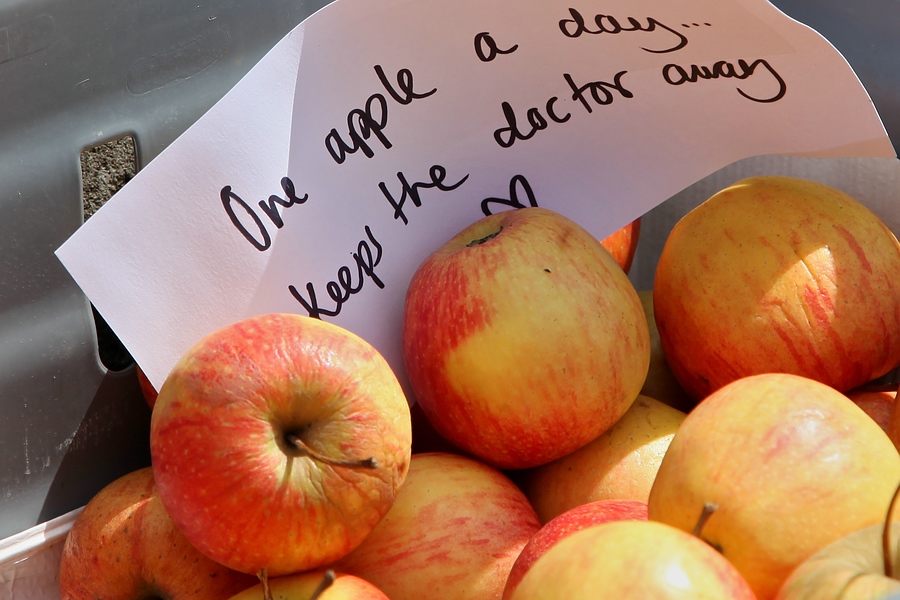 One apple a day...
keeps the doctor away